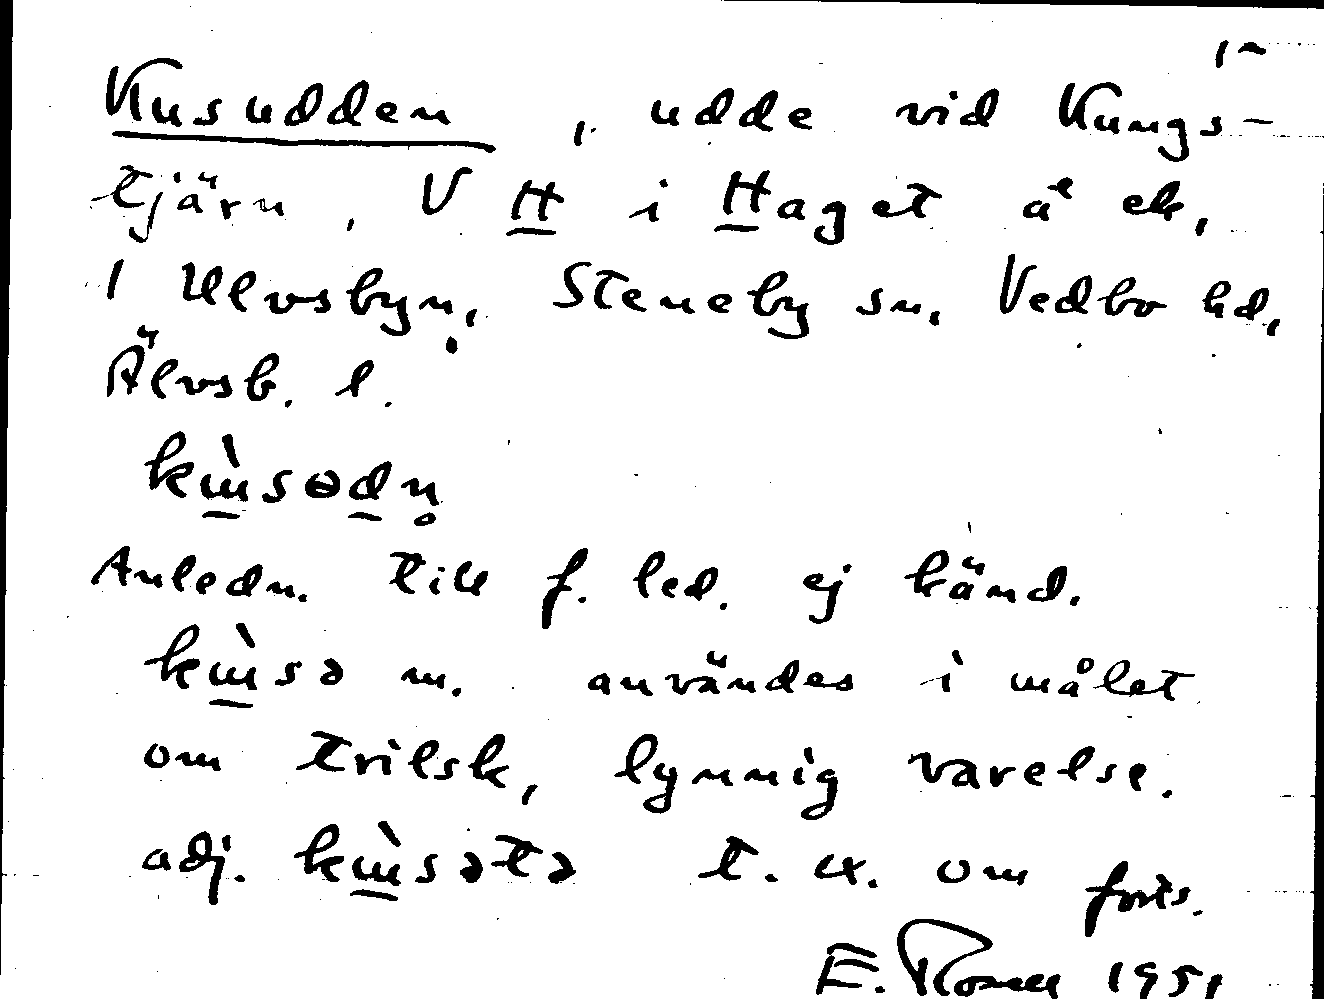 Kusudden, udde vid Kungs-
tjärn, V H i Haget å ek.
1 Ulvsbyn, Steneby sn, Vedbo hd,
Älvsb. l.
kɯ̀sɵdn̥
Anledn. till f. led. ej känd.
kɯ̀sə m. användes i målet
om trilsk, lynnig varelse.
adj. kɯ̀sətə t. ex. om
E. 1951